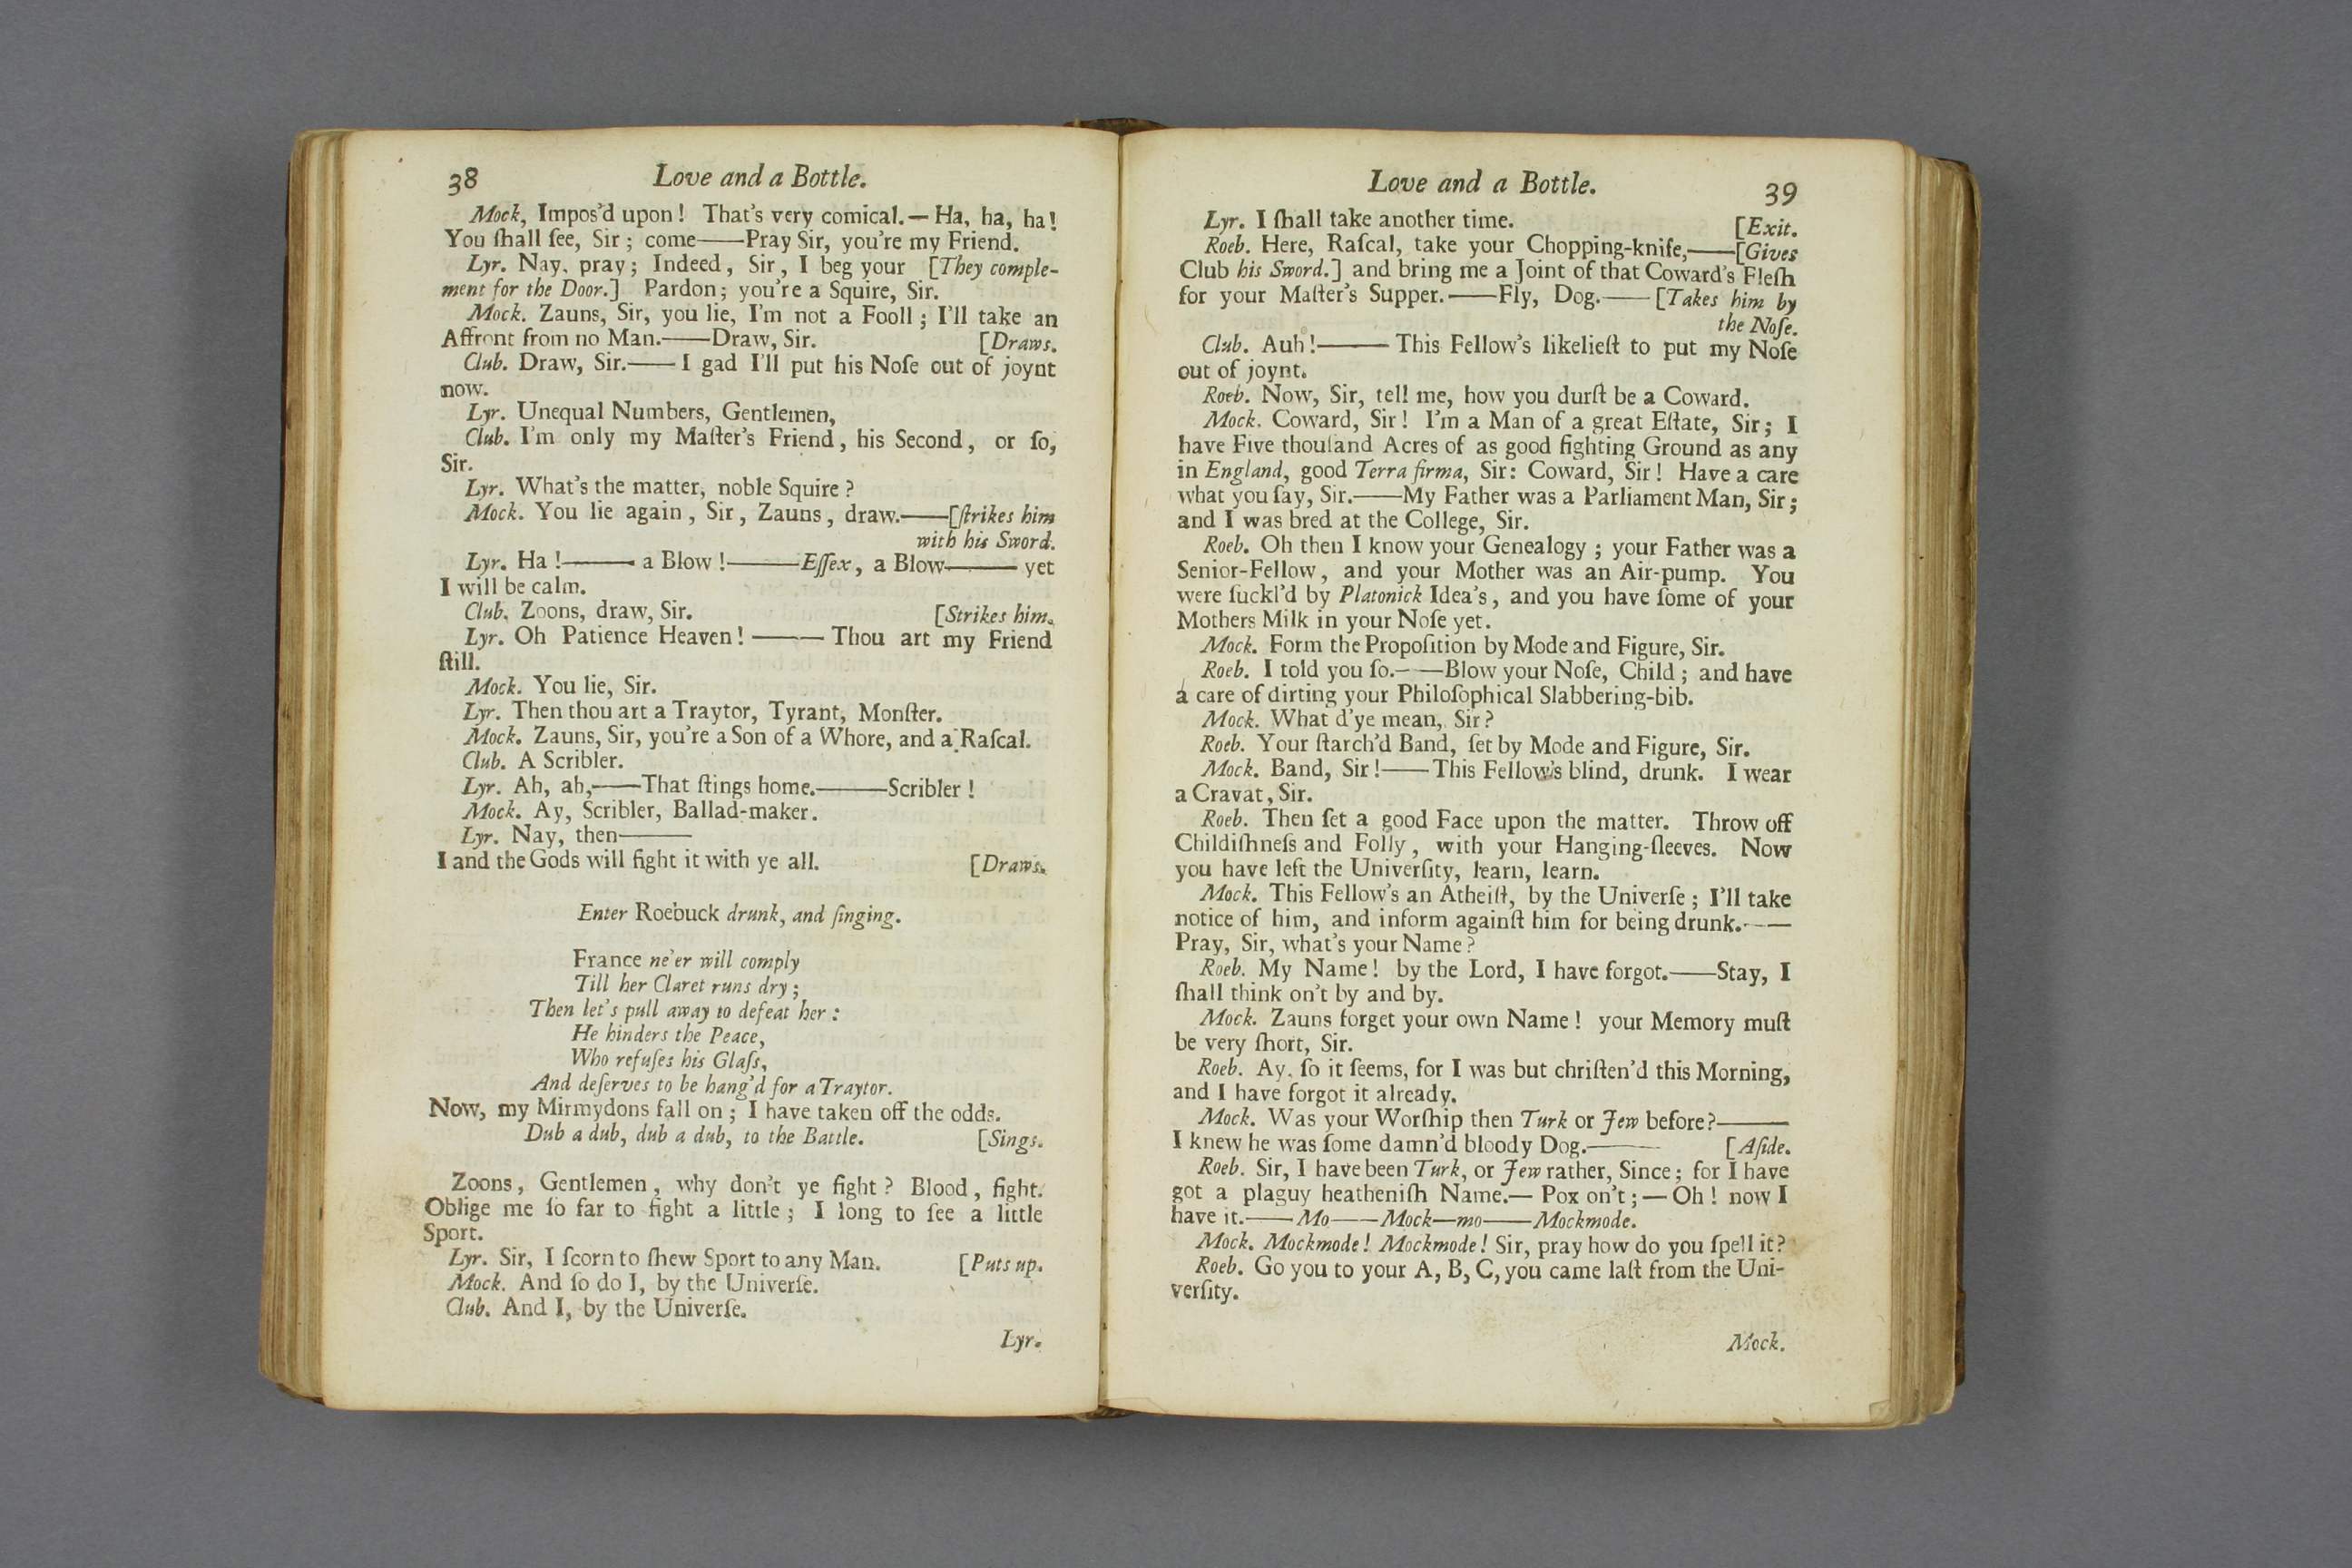 38 Love and a Bottle.
Mock, Impos'd upon! That's very comical.—Ha, ha, ha!
You ſhall ſee, Sir; come——Pray Sir, you're my Friend.
Lyr. Nay, pray; Indeed, Sir, I beg your [They comple-
ment for the Door.] Pardon; you're a Squire, Sir.
Mock. Zauns, Sir, you lie, I'm not a Fooll; I'll take an
Affront from no Man.——Draw, Sir. [Draws.
Club. Draw, Sir.——I gad I'll put his Noſe out of joynt
now.
Lyr. Unequal Numbers, Gentlemen,
Club. I'm only my Maſter's Friend, his Second, or ſo,
Sir.
Lyr. What's the matter, noble Squire?
Mock. You lie again, Sir, Zauns, draw.——[ſtrikes him
with his Sword.
Lyr. Ha!——— a Blow!———Eſſex, a Blow——— yet
I will be calm.
Club. Zoons, draw, Sir. [Strikes him.
Lyr. Oh Patience Heaven!——— Thou art my Friend
ſtill.
Mock. You lie, Sir.
Lyr. Then thou art a Traytor, Tyrant, Monſter.
Mock. Zauns, Sir, you're a Son of a Whore, and a Raſcal.
Club. A Scribler.
Lyr. Ah, ah,——That ſtings home.———Scribler!
Mock. Ay, Scribler, Ballad-maker.
Lyr. Nay, then———
I and the Gods will fight it with ye all. [Draws.
Enter Roebuck drunk, and ſinging.
France ne'er will comply
Till her Claret runs dry;
Then let's pull away to defeat her:
He hinders the Peace,
Who refuſes his Glaſs,
And deſerves to be hang'd for a Traytor.
Now, my Mirmydons fall on; I have taken off the odds.
Dub a dub, dub a dub, to the Battle. [Sings.
Zoons, Gentlemen, why don't ye fight? Blood, fight.
Oblige me ſo far to fight a little; I long to ſee a little
Sport.
Lyr. Sir, I ſcorn to ſhew Sport to any Man. [Puts up.
Mock. And ſo do I, by the Univerſe.
Club. And I, by the Univerſe.
Lyr.
Love and a Bottle. 39
Lyr. I ſhall take another time. [Exit.
Roeb. Here, Raſcal, take your Chopping-knife,——[Gives
Club his Sword.] and bring me a Joint of that Coward's Fleſh
for your Maſter's Supper.——Fly, Dog.——[Takes him by
the Noſe.
Club. Auh!——— This Fellow's likelieſt to put my Noſe
out of joynt.
Roeb. Now, Sir, tell me, how you durſt be a Coward.
Mock. Coward, Sir! I'm a Man of a great Eſtate, Sir; I
have Five thouſand Acres of as good fighting Ground as any
in England, good Terra firma, Sir: Coward, Sir! Have a care
what you ſay, Sir.——My Father was a Parliament Man, Sir;
and I was bred at the College, Sir.
Roeb. Oh then I know your Genealogy; your Father was a
Senior-Fellow, and your Mother was an Air-pump. You
were ſuckl'd by Platonick Idea's, and you have ſome of your
Mothers Milk in your Noſe yet.
Mock. Form the Propoſition by Mode and Figure, Sir.
Roeb. I told you ſo.——Blow your Noſe, Child; and have
a care of dirting your Philoſophical Slabbering-bib.
Mock. What d'ye mean, Sir?
Roeb. Your ſtarch'd Band, ſet by Mode and Figure, Sir.
Mock. Band, Sir!——This Fellow's blind, drunk. I wear
a Cravat, Sir.
Roeb. Then ſet a good Face upon the matter. Throw off
Childiſhneſs and Folly, with your Hanging-ſleeves. Now
you have left the Univerſity, learn, learn.
Mock. This Fellow's an Atheiſt, by the Univerſe; I'll take
notice of him, and inform againſt him for being drunk.——
Pray, Sir, what's your Name?
Roeb. My Name! by the Lord, I have forgot.——Stay, I
ſhall think on't by and by.
Mock. Zauns forget your own Name! your Memory muſt
be very ſhort, Sir.
Roeb. Ay, ſo it ſeems, for I was but chriſten'd this Morning,
and I have forgot it already.
Mock. Was your Worſhip then Turk or Jew before?———
I knew he was ſome damn'd bloody Dog.——— [Aſide.
Roeb. Sir, I have been Turk, or Jew rather, Since; for I have
got a plaguy heatheniſh Name.— Pox on't;—Oh! now I
have it.——Mo——Mock—mo——Mockmode.
Mock. Mockmode! Mockmode! Sir, pray how do you ſpell it?
Roeb. Go you to your A, B, C, you came laſt from the Uni-
verſity.
Mock.